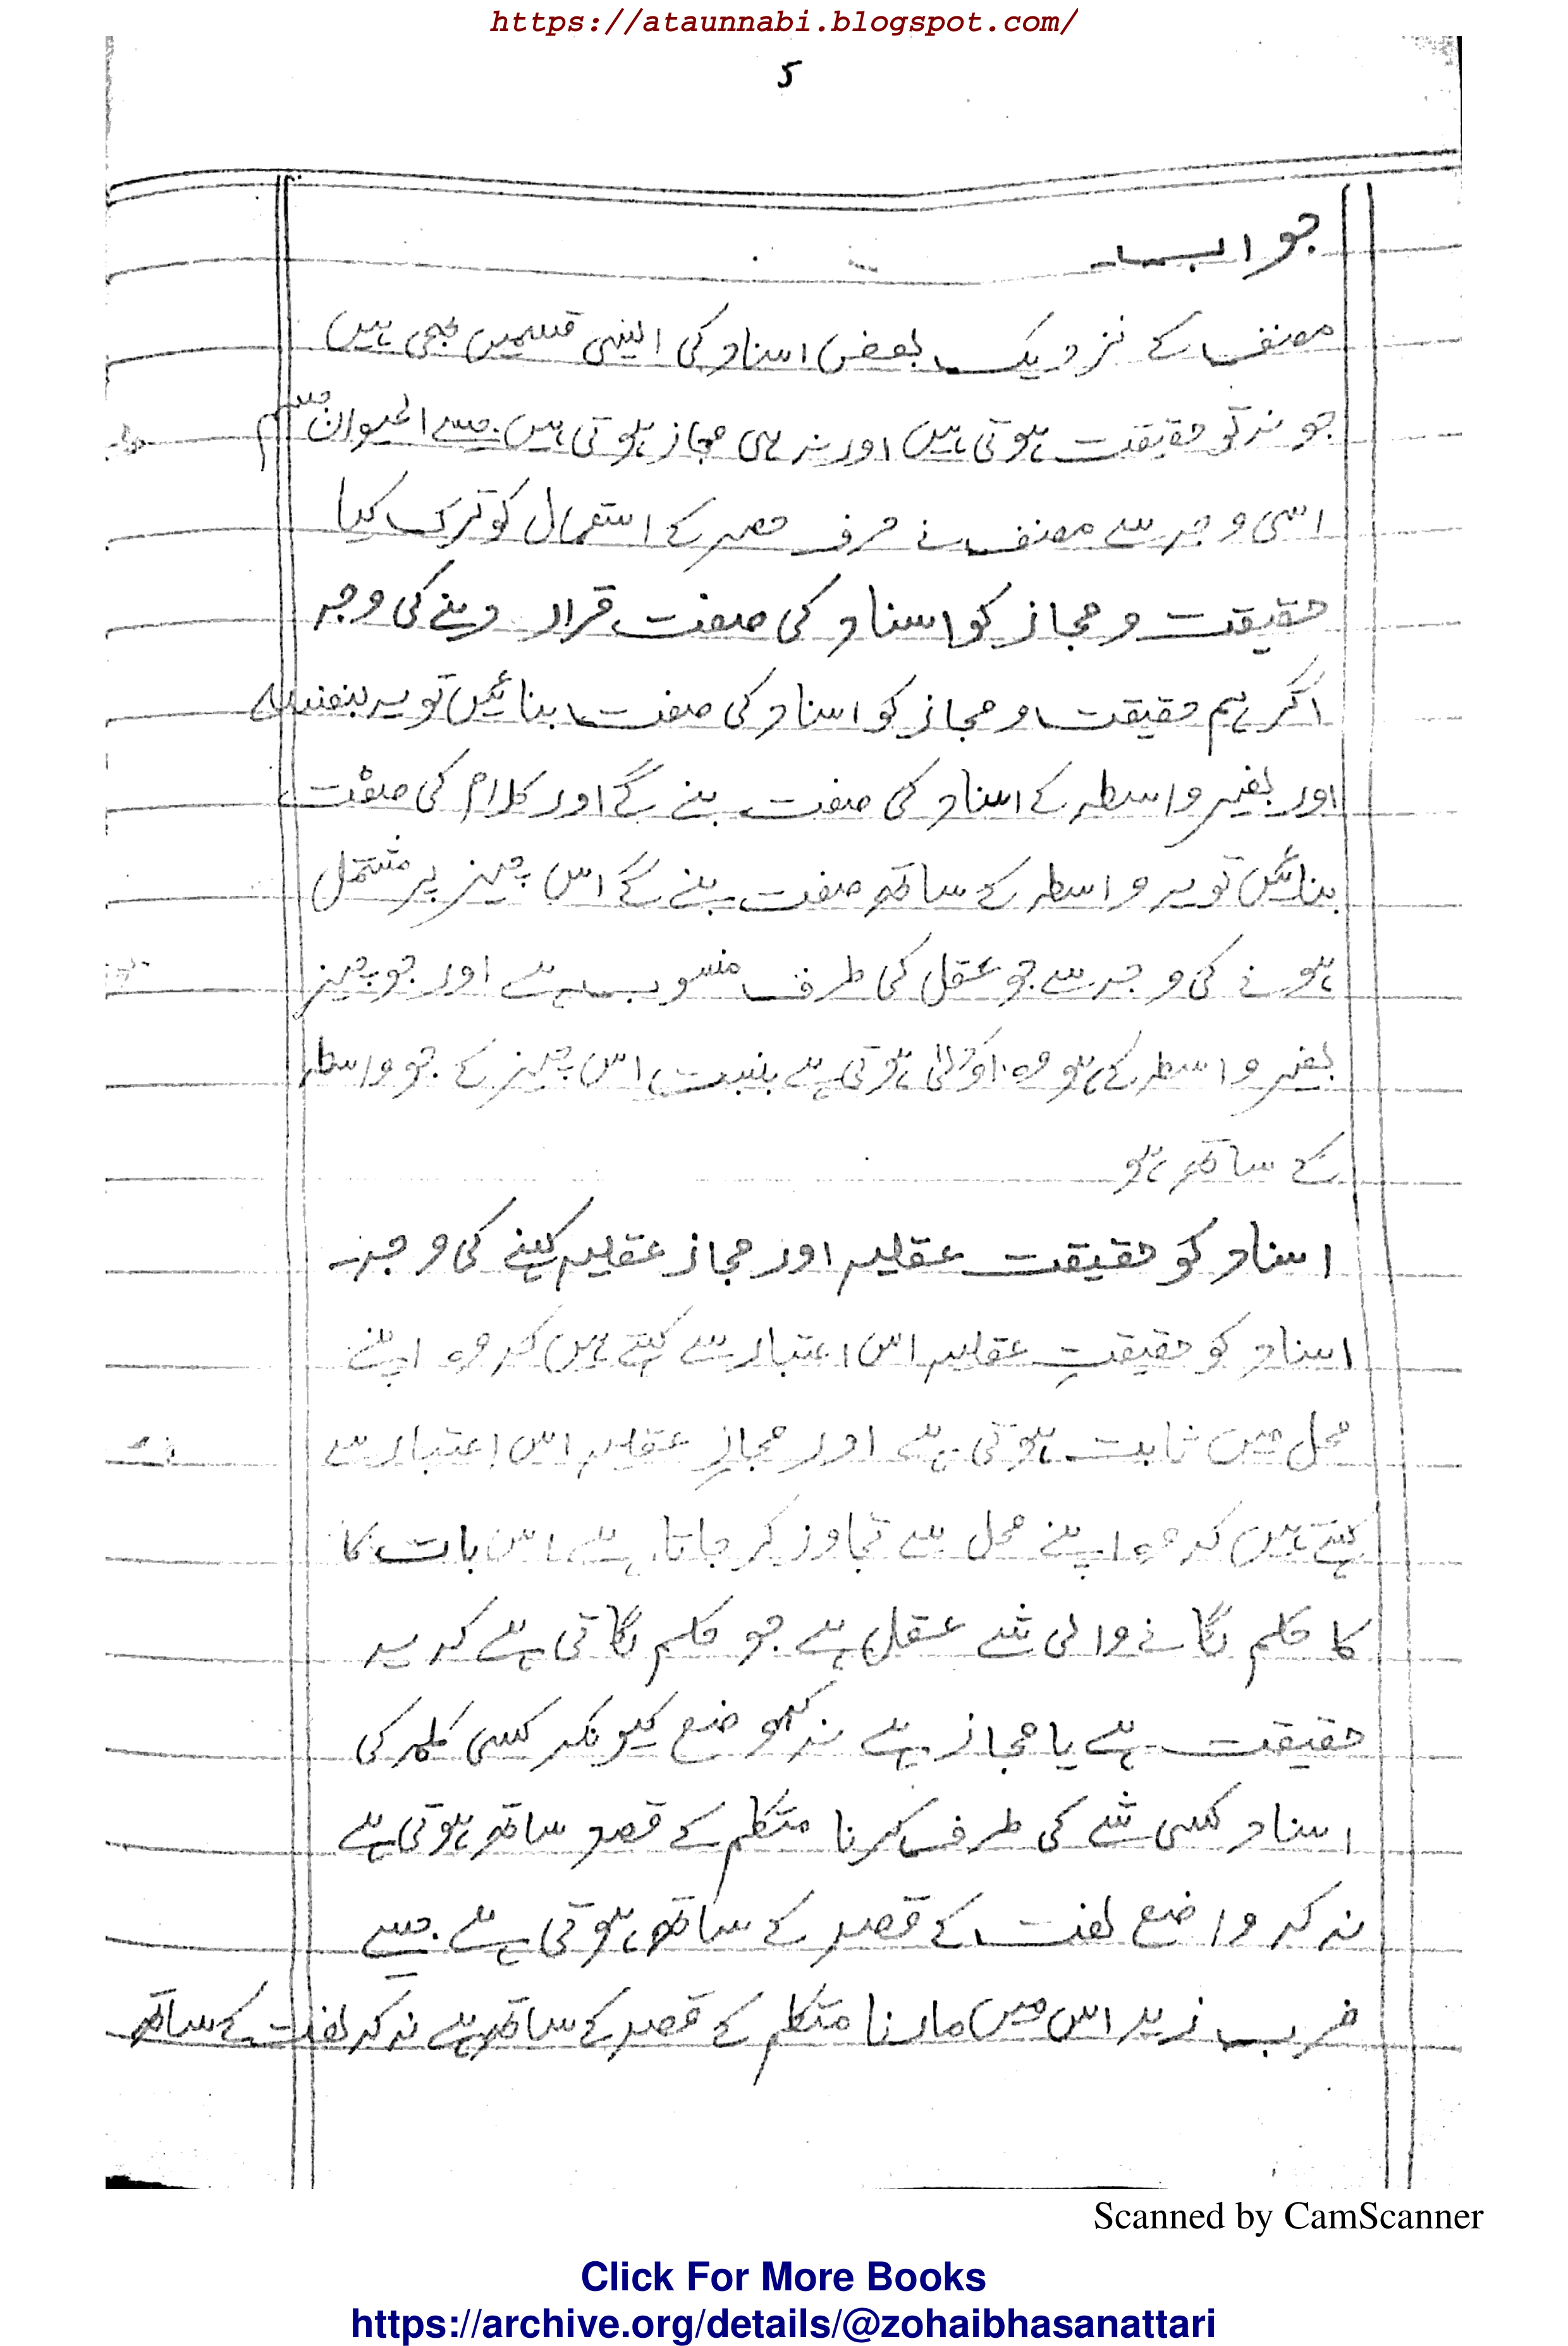 https://ataunnabi.blogspot.com/
5
جواب
مصنف کے نزدیک بعض اسناد کی ایسی قسمیں بھی ہیں
جو نہ تو حقیقت ہوتی ہیں اور نہ ہی مجاز ہوتی ہیں جیسے الحیوان جسم
اسی وجہ سے مصنف نے حرف حصر کے استعمال کو ترک کیا
حقیقت و مجاز کو اسناد کی صفت قرار دینے کی وجہ
اگر ہم حقیقت و مجاز کو اسناد کی صفت بنائیں تو یہ بنفسہ
اور بغیر واسطہ کے اسناد کی صفت بنے گے اور کلام کی صفت
بنائیں تو یہ واسطہ کے ساتھ صفت بنے گے اس چیز پر مشتمل
ہونے کی وجہ سے جو عقل کی طرف منسوب ہے اور جو چیز
بغیر واسطہ کے ہو وہ اولیٰ ہوتی ہے بنسبت اس چیز کے جو واسطہ
کے ساتھ ہو
اسناد کو حقیقت عقلیہ اور مجاز عقلیہ کہنے کی وجہ
اسناد کو حقیقتِ عقلیہ اس اعتبار سے کہتے ہیں کہ وہ اپنے
محل میں ثابت ہوتی ہے اور مجازِ عقلیہ اس اعتبار سے
کہتے ہیں کہ وہ اپنے محل سے تجاوز کر جاتا ہے اس بات کا
کا حکم لگانے والی شے عقل ہے جو حکم لگاتی ہے کہ یہ
حقیقت ہے یا مجاز ہے نہ کہ وضع کیونکہ کسی کلمہ کی
اسناد کسی شے کی طرف کرنا متکلم کے قصد ساتھ ہوتی ہے
نہ کہ واضع لغت کے قصد کے ساتھ ہوتی ہے جیسے
ضرب زید اس میں مارنا متکلم کے قصد کے ساتھ ہے نہ کہ لغت کے ساتھ
Scanned by CamScanner
Click For More Books
https://archive.org/details/@zohaibhasanattari